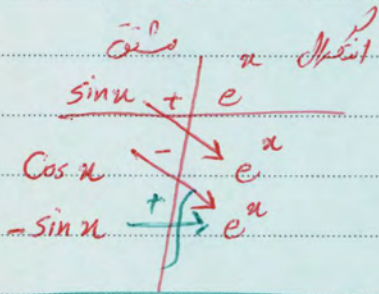 مشتق انتگرال
sin x + e^x
cos x - e^x
-sin x + ∫ e^x